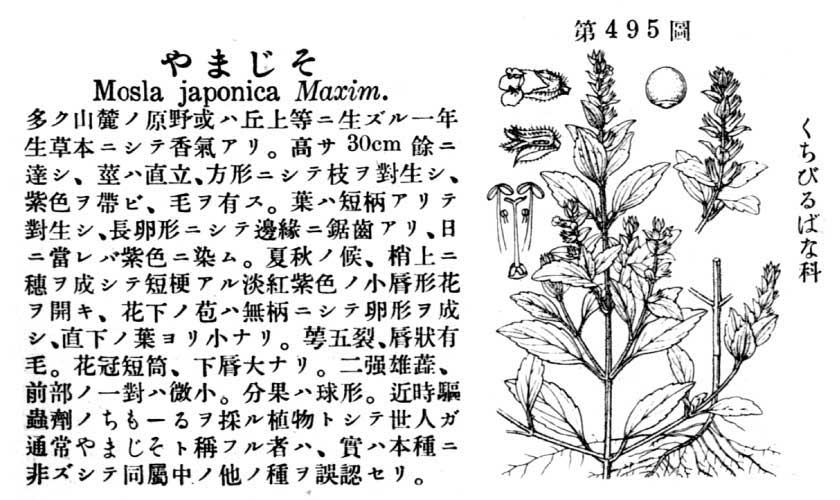 第495圖
くちびるばな科
やまじそ
Mosla japonica Maxim.
多ク山麓ノ原野或ハ丘上等ニ生ズル一年
生草本ニシテ香氣アリ。高サ 30cm 餘ニ
達シ、莖ハ直立、方形ニシテ枝ヲ對生シ、
紫色ヲ帶ビ、毛ヲ有ス。葉ハ短柄アリテ
對生シ、長卵形ニシテ邊緣ニ鋸齒アリ、日
ニ當レバ紫色ニ染ム。夏秋ノ候、梢上ニ
穗ヲ成シテ短梗アル淡紅紫色ノ小唇形花
ヲ開キ、花下ノ苞ハ無柄ニシテ卵形ヲ成
シ、直下ノ葉ヨリ小ナリ。萼五裂、唇狀有
毛。花冠短筒、下唇大ナリ。二强雄蕋、
前部ノ一對ハ微小。分果ハ球形。近時驅
蟲劑ノちもーるヲ採ル植物トシテ世人ガ
通常やまじそト稱フル者ハ、實ハ本種ニ
非ズシテ同屬中ノ他ノ種ヲ誤認セリ。